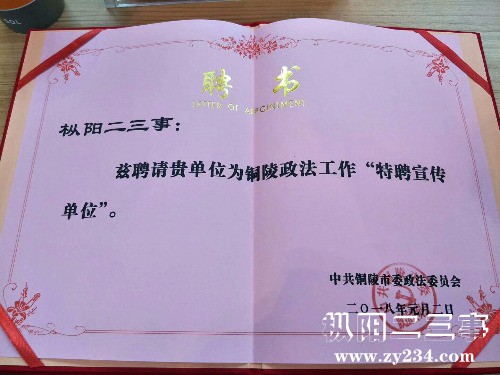 SOL
聘 书
LETTER OF APPOINTMENT
枞阳二三事：
兹聘请贵单位为铜陵政法工作“特聘宣传
单位”。
中共铜陵市委政法委员会
二〇一八年元月二日
枞阳二三事
www.zy234.com